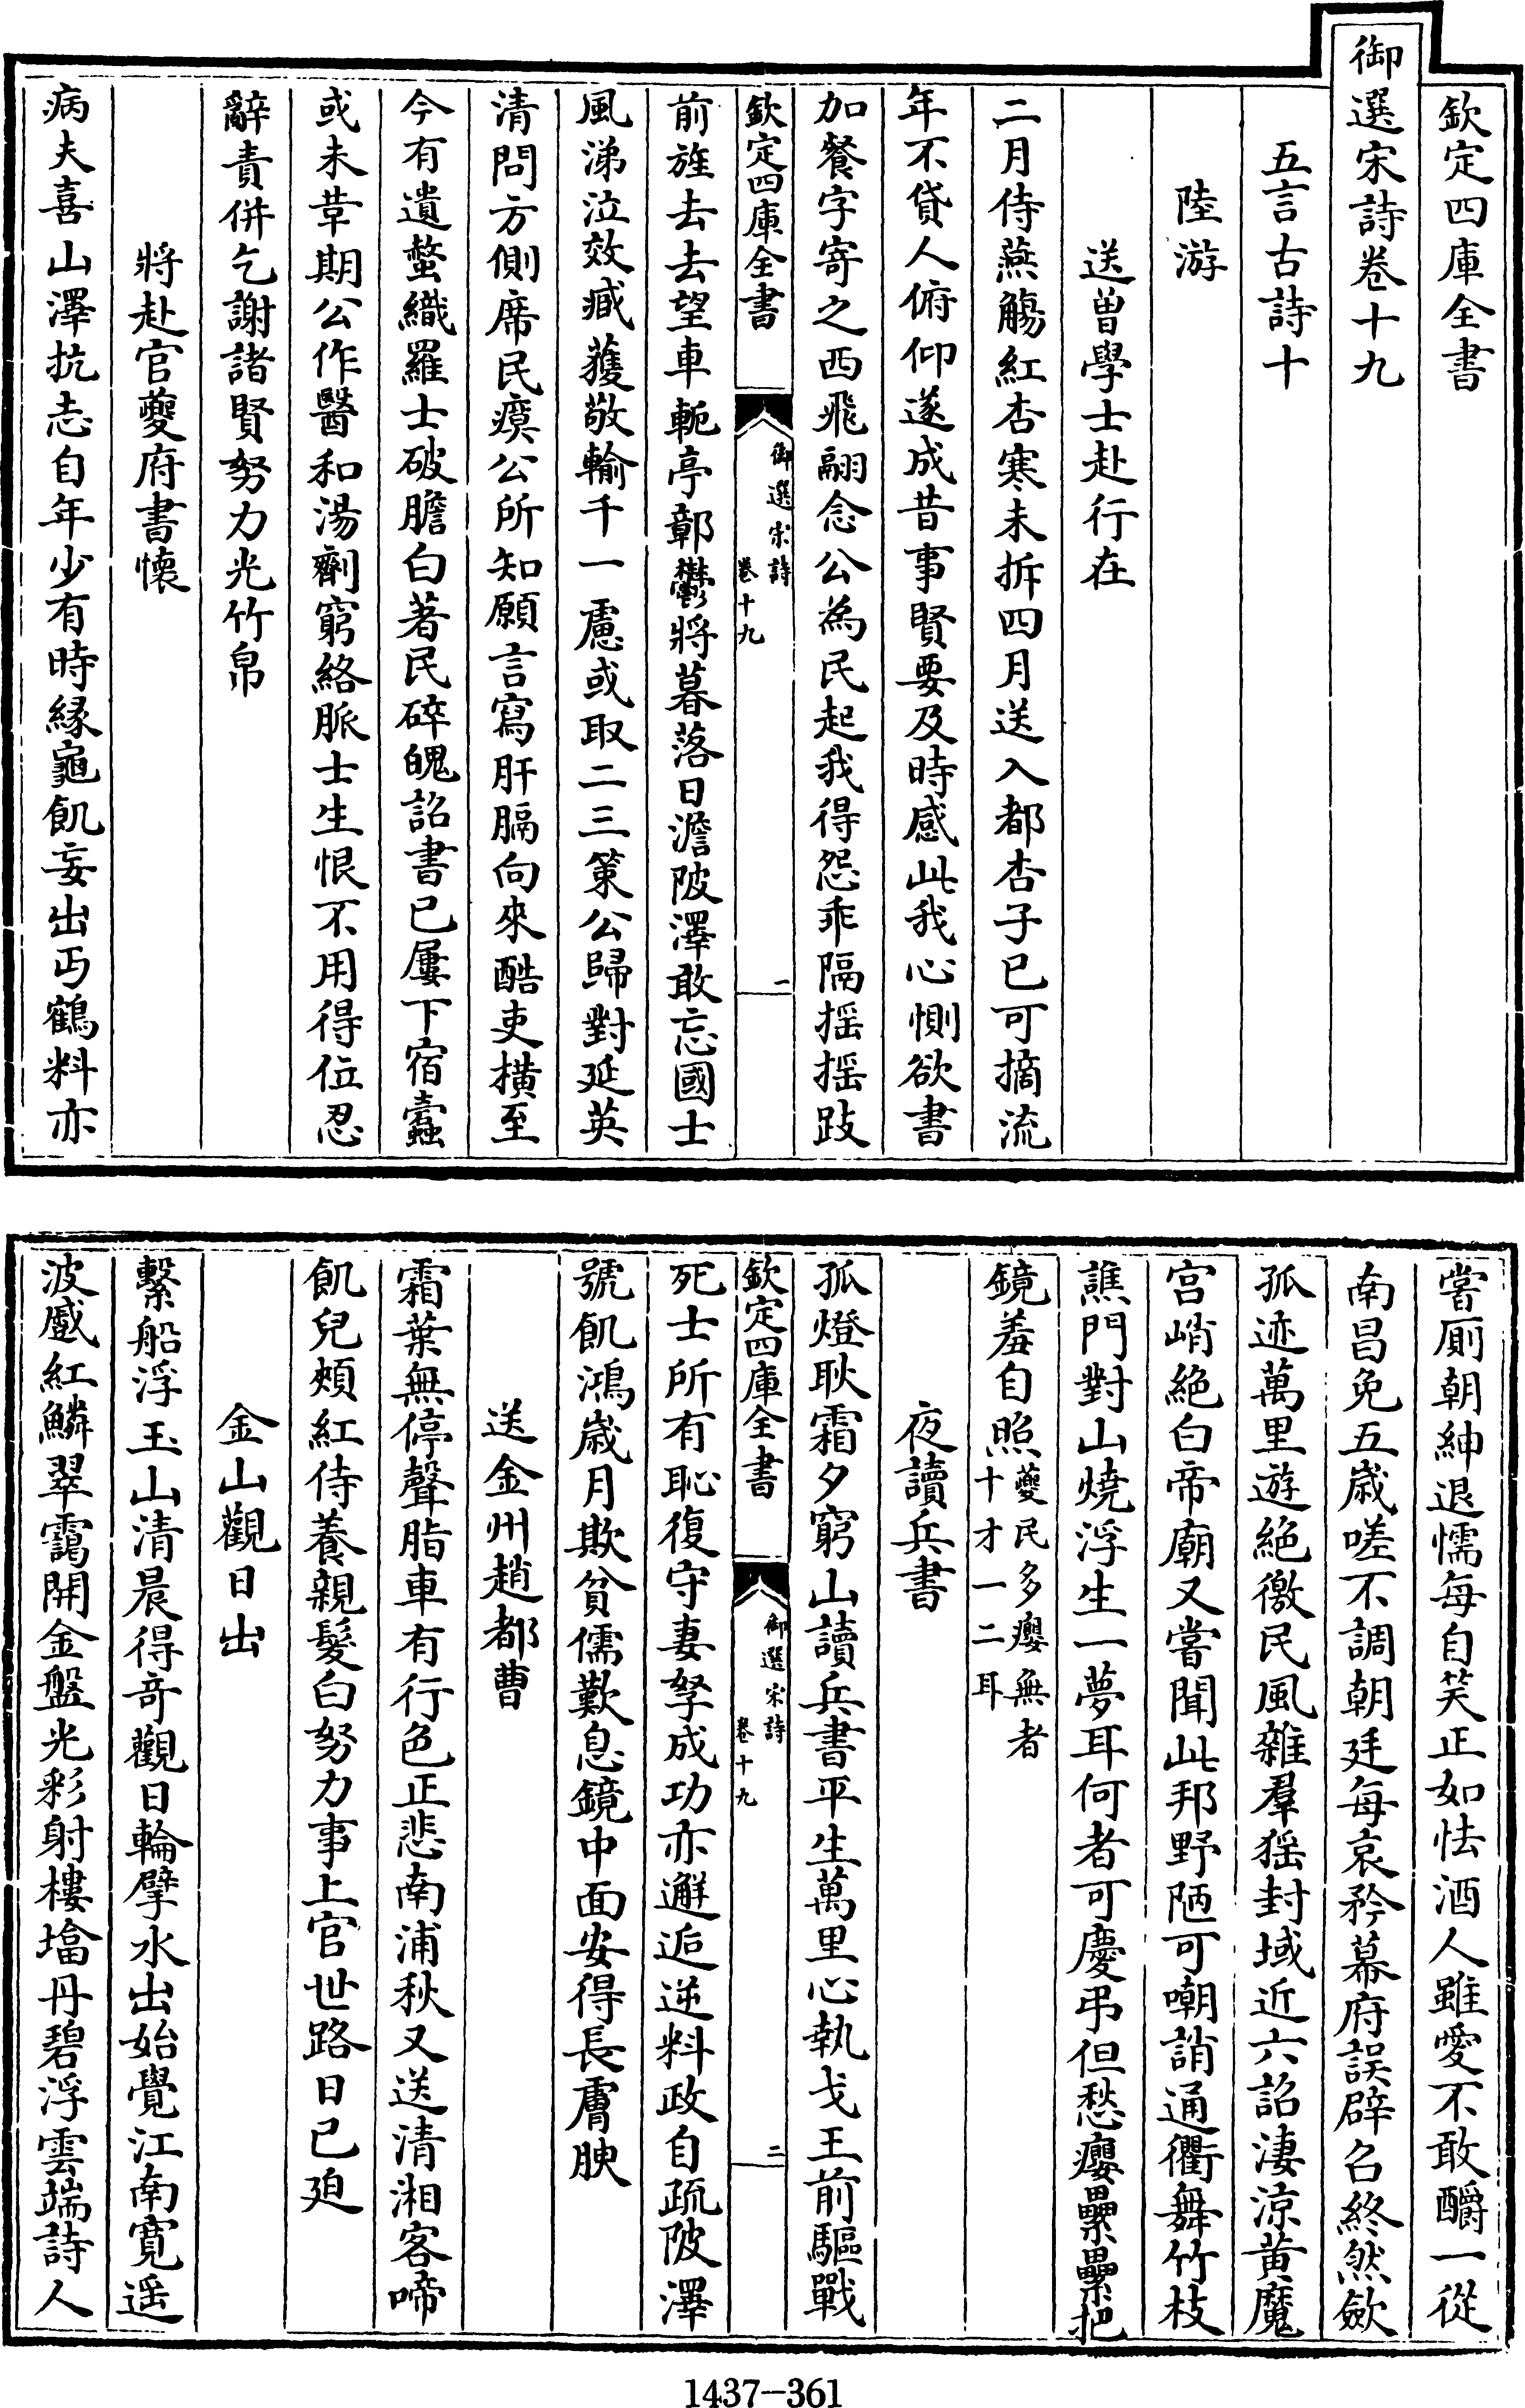 欽定四庫全書
御選宋詩卷十九
五言古詩十
陸游
送曾學士赴行在
二月侍燕觴紅杏寒未拆四月送入都杏子已可摘流
年不貸人俯仰遂成昔事賢要及時感此我心惻欲書
加餐字寄之西飛翮念公為民起我得怨乖隔揺揺跂
欽定四庫全書
御選宋詩
卷十九
一
前旌去去望車軛亭鄣鬱將暮落日澹陂澤敢忘國士
風涕泣效臧獲敬輸千一慮或取二三策公歸對延英
清問方側席民瘼公所知願言寫肝膈向來酷吏横至
今有遺螫織羅士破膽白著民碎魄詔書已屢下宿蠹
或未革期公作醫和湯劑窮絡脈士生恨不用得位忍
辭責併乞謝諸賢努力光竹帛
將赴官夔府書懷
病夫喜山澤抗志自年少有時緣龜飢妄出丐鶴料亦
嘗厠朝紳退懦每自笑正如怯酒人雖愛不敢釂一從
南昌免五歳嗟不調朝廷每哀矜幕府誤辟召終然歛
孤迹萬里游絶徼民風雜羣猺封域近六詔淒涼黄魔
宫峭絶白帝廟又嘗聞此邦野陋可嘲誚通衢舞竹枝
譙門對山燒浮生一夢耳何者可慶弔但愁癭纍纍把
鏡羞自照夔民多癭無者
十才一二耳
夜讀兵書
孤燈耿霜夕窮山讀兵書平生萬里心執戈王前驅戰
欽定四庫全書
御選宋詩
卷十九
二
死士所有恥復守妻孥成功亦邂逅逆料政自疏陂澤
號飢鴻歳月欺貧儒歎息鏡中面安得長膚腴
送金州趙都曹
霜葉無停聲脂車有行色正悲南浦秋又送清湘客啼
飢兒頰紅侍養親髮白努力事上官世路日已迫
金山觀日出
繫船浮玉山清晨得竒觀日輪擘水出始覺江南寛遥
波蹙紅鱗翠靄開金盤光彩射樓塔丹碧浮雲端詩人
1437-361